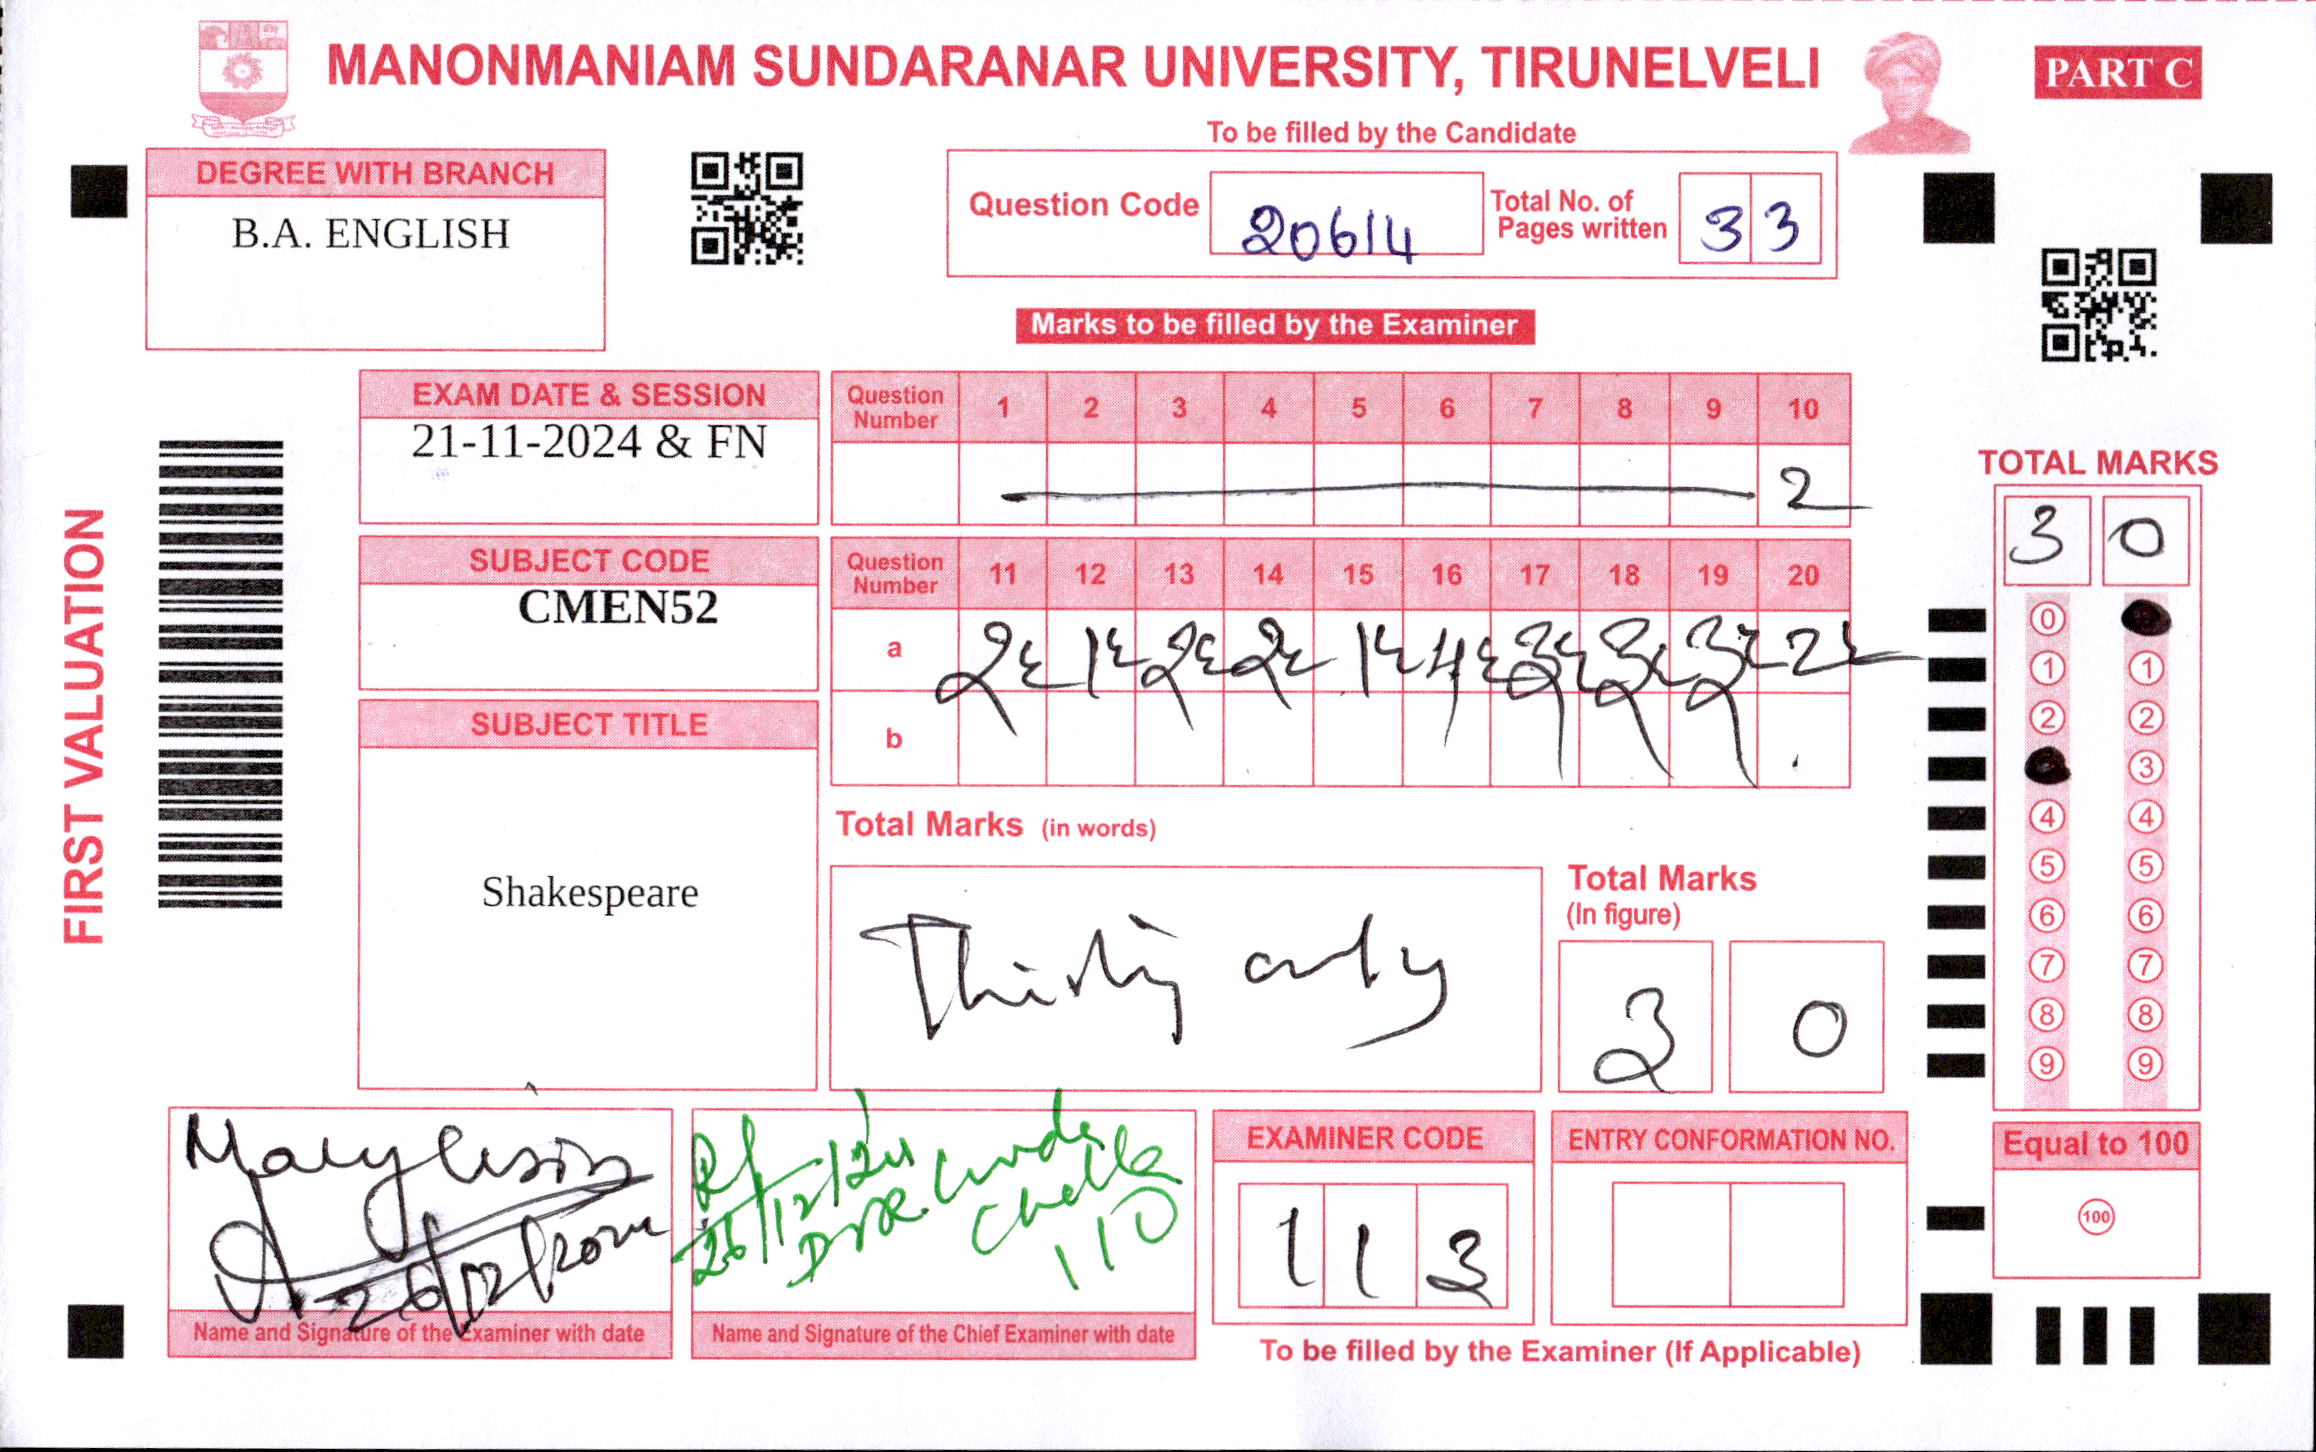 MANONMANIAM SUNDARANAR UNIVERSITY, TIRUNELVELI
PART C
To be filled by the Candidate
DEGREE WITH BRANCH
B.A. ENGLISH
Question Code 20614
Total No. of Pages written 33
Marks to be filled by the Examiner
FIRST VALUATION
EXAM DATE & SESSION
21-11-2024 & FN
Question Number 1 2 3 4 5 6 7 8 9 10
2
SUBJECT CODE
CMEN52
Question Number 11 12 13 14 15 16 17 18 19 20
a
b
SUBJECT TITLE
Shakespeare
Total Marks (in words)
Thirty only
Total Marks
(In figure)
3 0
TOTAL MARKS
3 0
0
1 1
2 2
3
4 4
5 5
6 6
7 7
8 8
9 9
Equal to 100
100
26/12/2024
Name and Signature of the Examiner with date
26/12/24
110
Name and Signature of the Chief Examiner with date
EXAMINER CODE
1 1 3
ENTRY CONFORMATION NO.
To be filled by the Examiner (If Applicable)